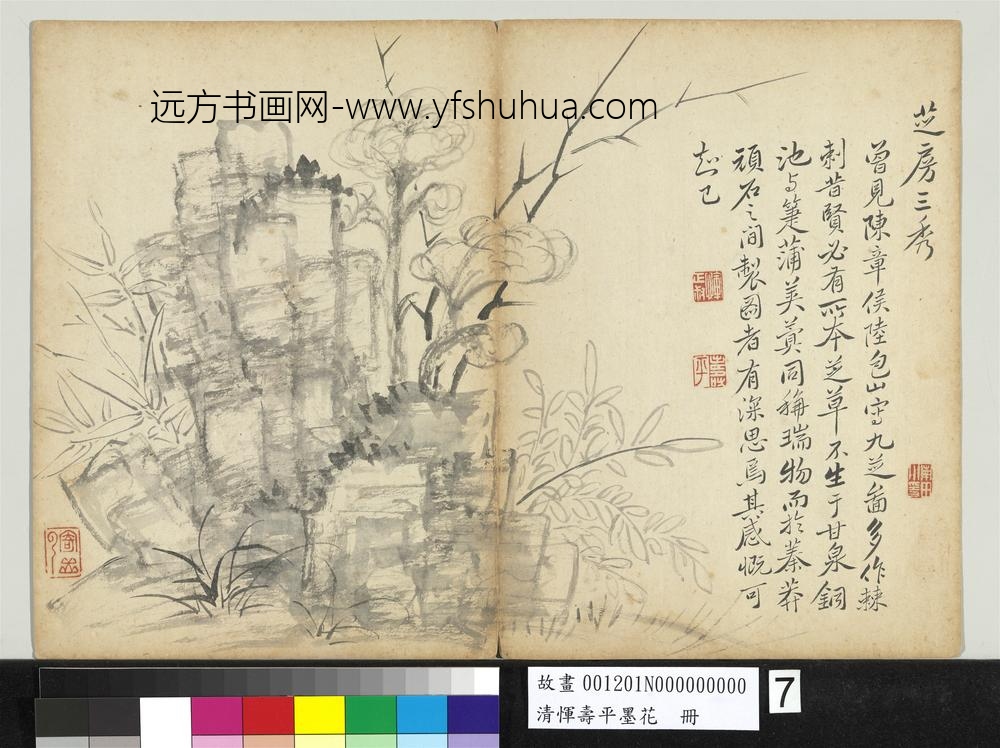 远方书画网-www.yfshuhua.com
芝房三秀
曾見陳章侯陸包山寫九芝啚多作棘
刺昔賢必有所本芝草不生于甘泉銅
池与箑蒲美蓂同稱瑞物而於蓁莽
頑石之間製啚者有深思焉其感慨可
知已
故畫 001201N000000000
清惲壽平墨花 冊
7